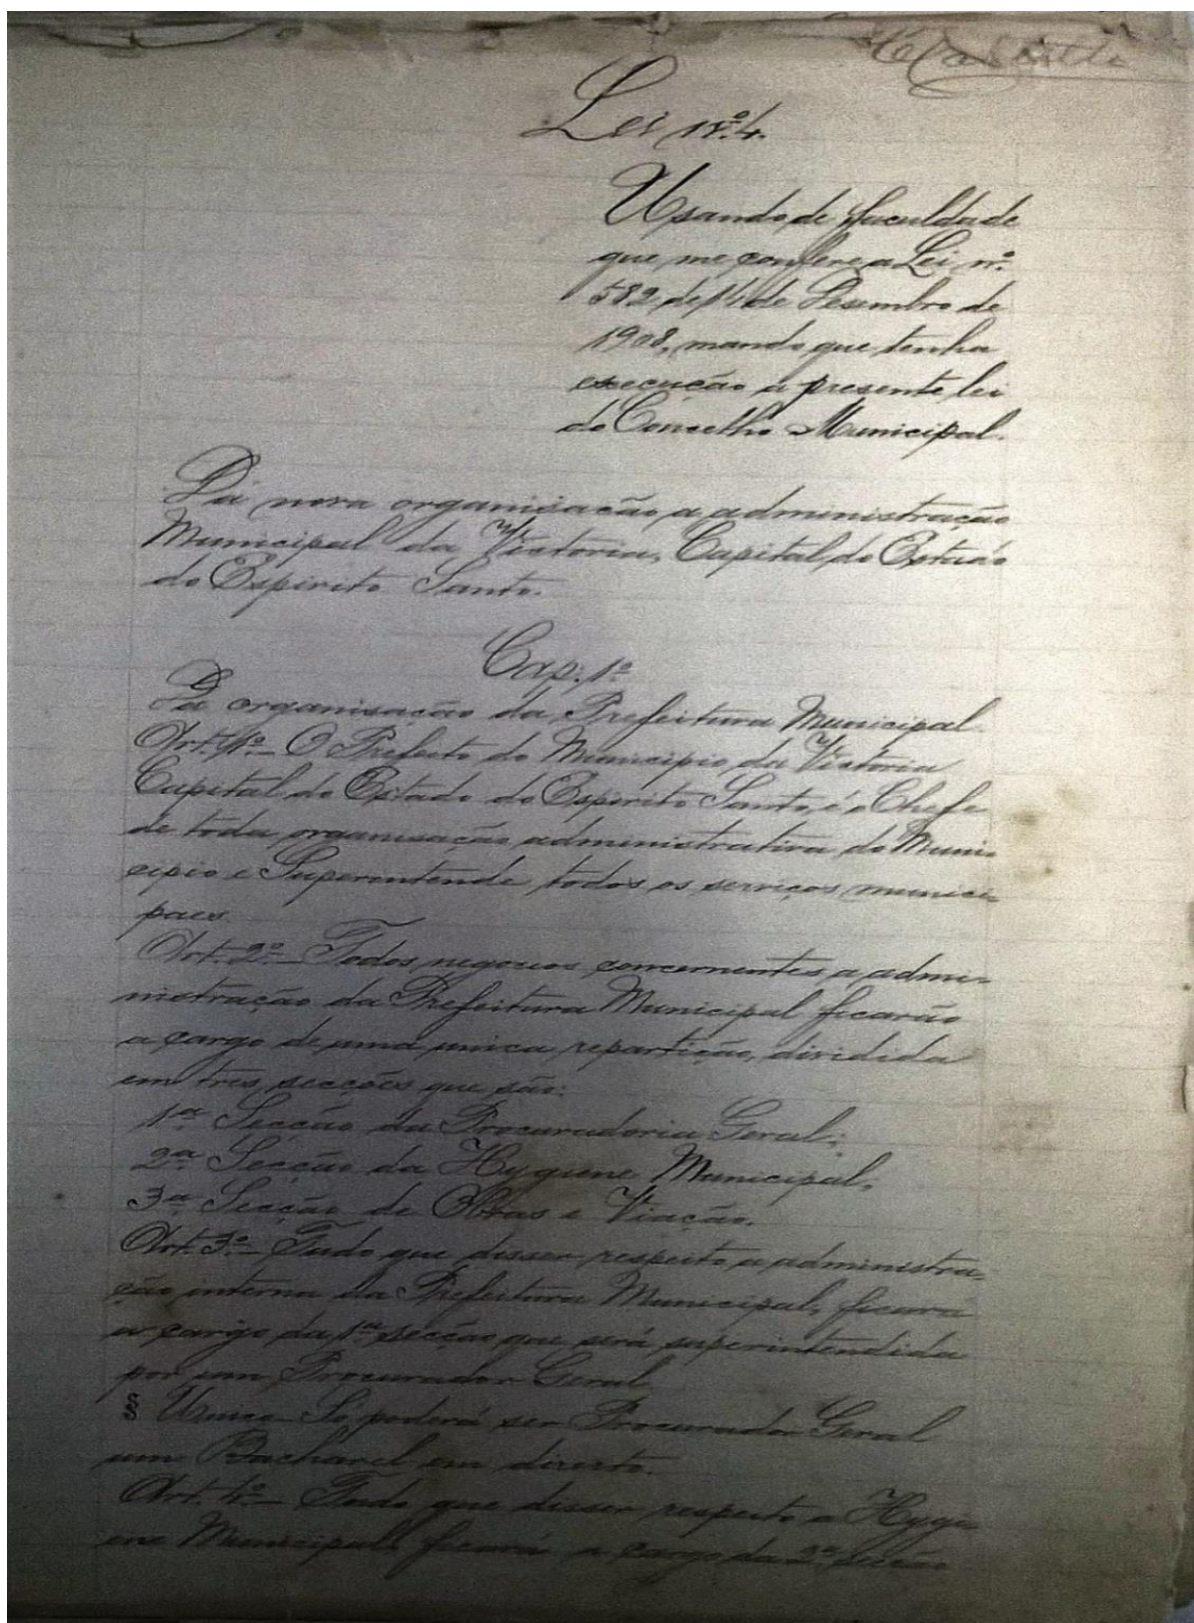 Lei nº 4.
Usando de faculdade
que me confere a Lei nº
582 de 14 de Desembro de
1908, mando que tenha
execução a presente lei
do Concelho Municipal.
Dá nova organisação a administração
Municipal da Victoria, Capital do Estado
do Espirito Santo.
Cap. 1º
Da organisação da Prefeitura Municipal
Art. 1º— O Prefeito do Municipio da Victoria
Capital do Estado do Espirito Santo é o Chefe
de toda organisação administrativa do Muni-
cipio e Superintende todos os serviços munici-
paes.
Art. 2º— Todos negocios concernentes a admi-
nistração da Prefeitura Municipal ficarão
a cargo de uma unica repartição, dividida
em tres secções que são:
1ª Secção da Procuradoria Geral;
2ª Secção da Hygiene Municipal,
3ª Secção de Obras e Viação.
Art. 3º— Tudo que disser respeito a administra-
ção interna da Prefeitura Municipal, ficara
a cargo da 1ª secção que será superintendida
por um Procurador Geral
§ Unico— Só poderá ser Procurador Geral
um Bacharel em direito.
Art. 4º— Tudo que disser respeito a Hygi-
ene Municipal ficará a cargo da 2ª secção